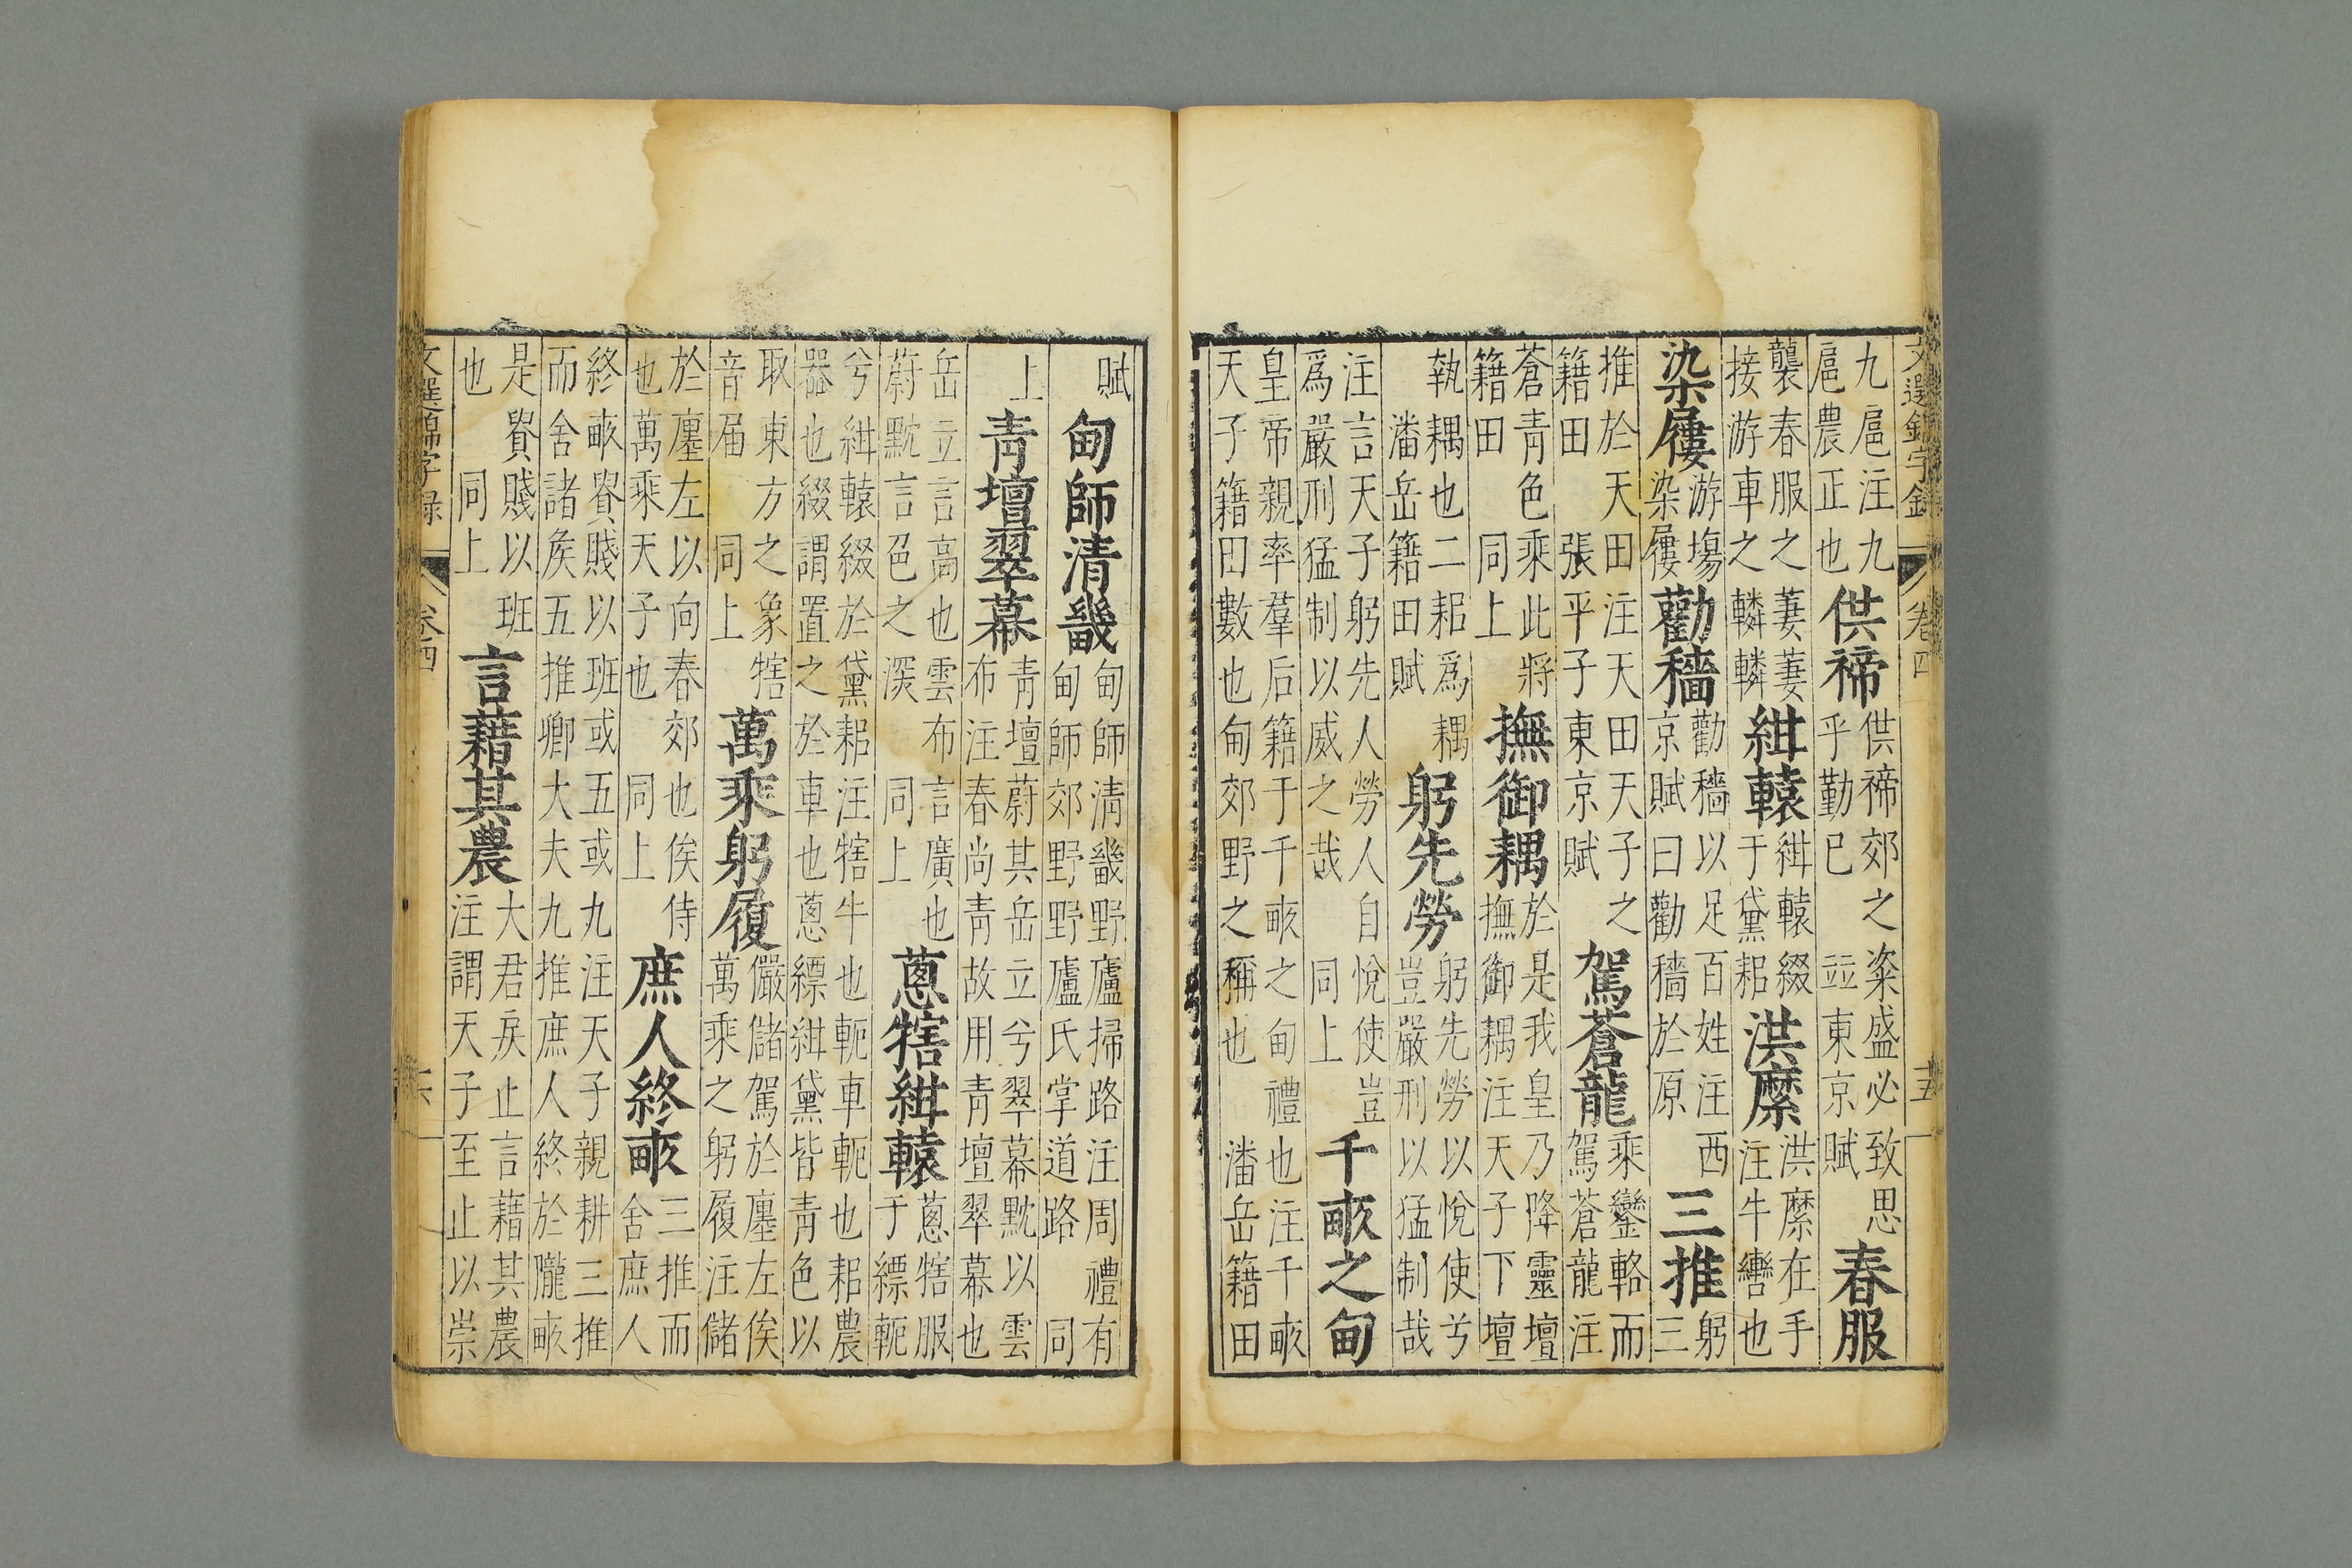 文選錦字錄 卷四 十五
九扈注九
扈農正也
供禘
供禘郊之粢盛必致思
乎勤已 竝東京賦
春服
襲春服之萋萋
接游車之轔轔
紺轅
紺轅綴
于黛耜
洪縻
洪縻在手
注牛轡也
染屨
游塲
染屨
勸穡
勸穡以足百姓注西
京賦曰勸穡於原
三推
躬
三
推於天田注天田天子之
籍田 張平子東京賦
駕蒼龍
乘鑾輅而
駕蒼龍注
蒼青色乘此將
籍田 同上
撫御耦
於是我皇乃降靈壇
撫御耦注天子下壇
執耦也二耜爲耦
潘岳籍田賦
躬先勞
躬先勞以悅使兮
豈嚴刑以猛制哉
注言天子躬先人勞人自悅使豈
爲嚴刑猛制以威之哉 同上
千畝之甸
皇帝親率羣后籍于千畝之甸禮也注千畝
天子籍田數也甸郊野之稱也 潘岳籍田
賦
甸師清畿
甸師清畿野廬掃路注周禮有
甸師郊野野廬氏掌道路 同
上
青壇翠幕
青壇蔚其岳立兮翠幕黕以雲
布注春尚青故用青壇翠幕也
岳立言高也雲布言廣也
蔚黕言色之深 同上
蔥犗紺轅
蔥犗服
于縹軛
兮紺轅綴於黛耜注犗牛也軛車軛也耜農
器也綴謂置之於車也蔥縹紺黛皆青色以
取東方之象犗
音届 同上
萬乘躬履
儼儲駕於廛左俟
萬乘之躬履注儲
於廛左以向春郊也俟侍
也萬乘天子也 同上
庶人終畝
三推而
舍庶人
終畝貴賤以班或五或九注天子親耕三推
而舍諸侯五推卿大夫九推庶人終於隴畝
是貴賤以班
也 同上
言藉其農
大君戾止言藉其農
注謂天子至止以崇
文選錦字録 卷四 六